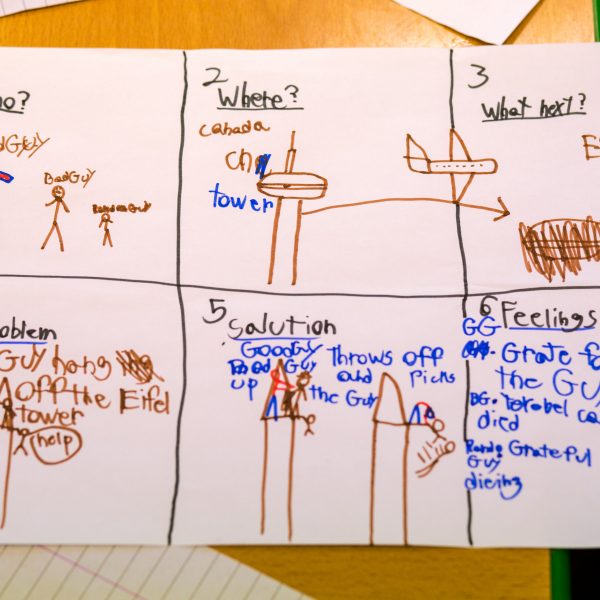 o?
dGuy
BadGuy
RandomGuy
2
Where?
canada
cn
tower
3
What next?
E
oblem
Guy hang
off the Eifel
tower
help
5
Solution
GoodGuy throws off
Bad Guy and Picks
up the Guy
6 Feelings
GG
Grate fo
the Gu
BG. terebel ca
died
Rando Grateful
Guy
dieing